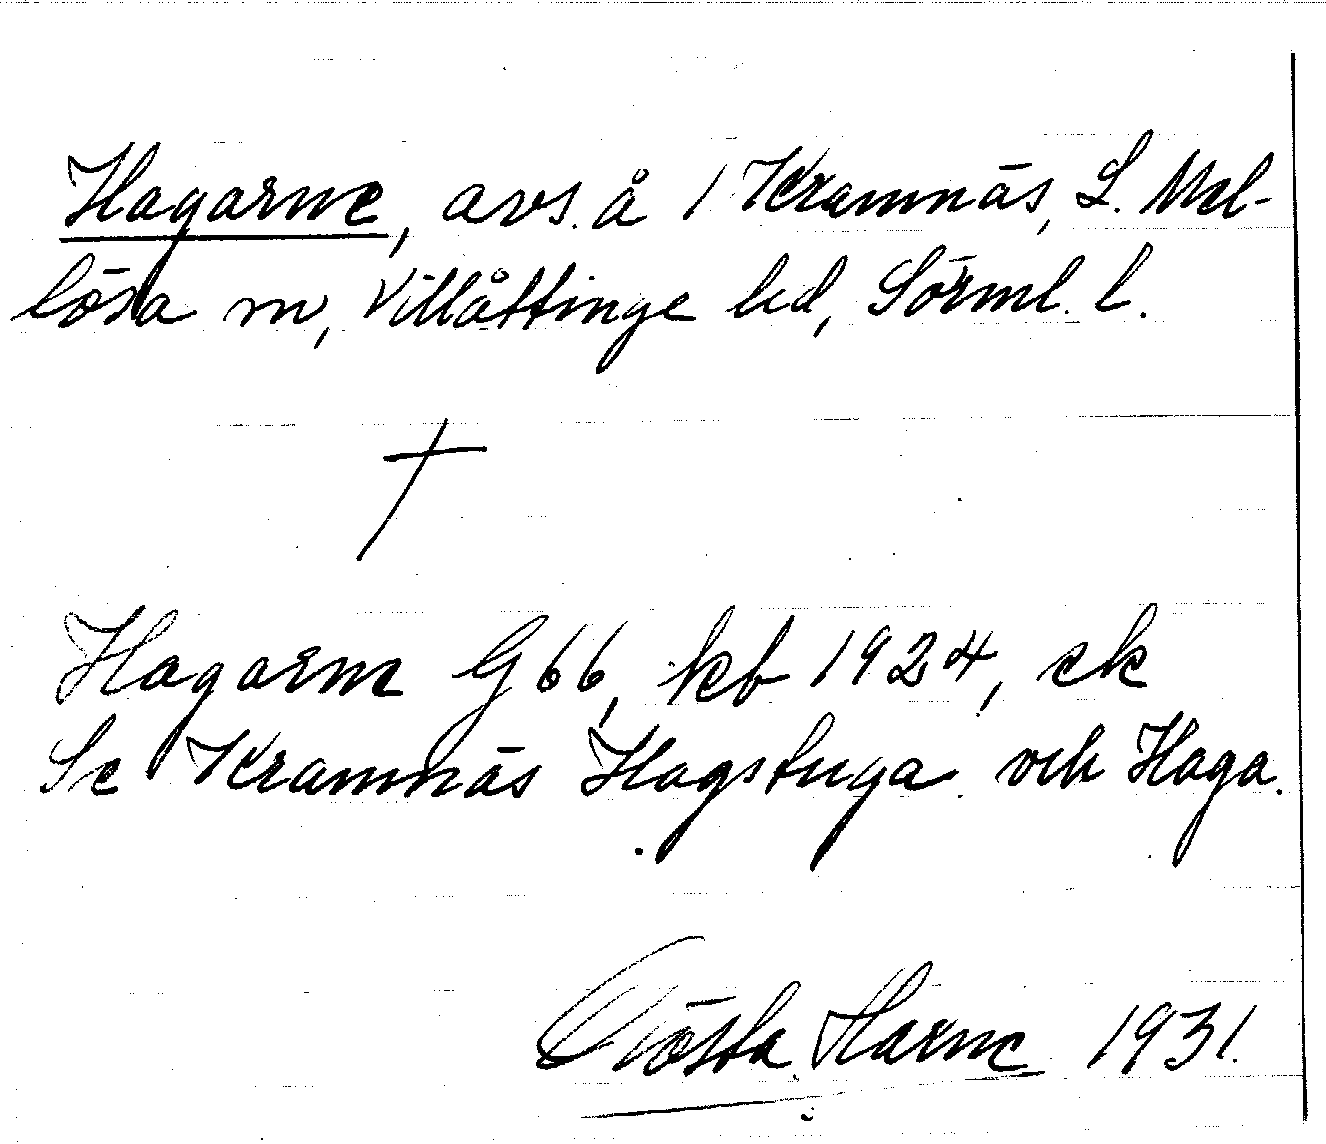 Hagarne, avs. å 1 Kramnäs, L. Mel-
lösa sn, Villåttinge hd, Sörml. l.
†
Hagarne G 66, kb 1924, ek
Se Kramnäs Hagstuga och Haga.
Gösta Harne 1931.